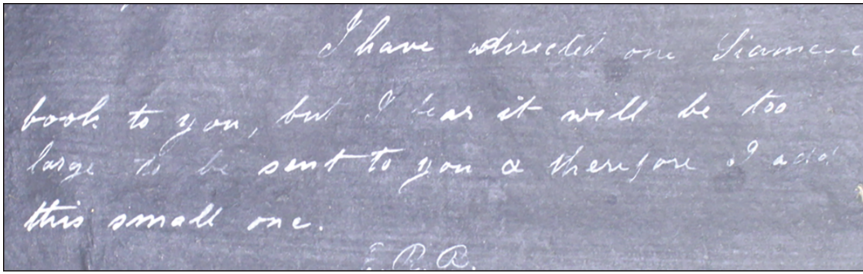 I have directed one Siamese
book to you, but I fear it will be too
large to be sent to you & therefore I add
this small one.
E. R. R.